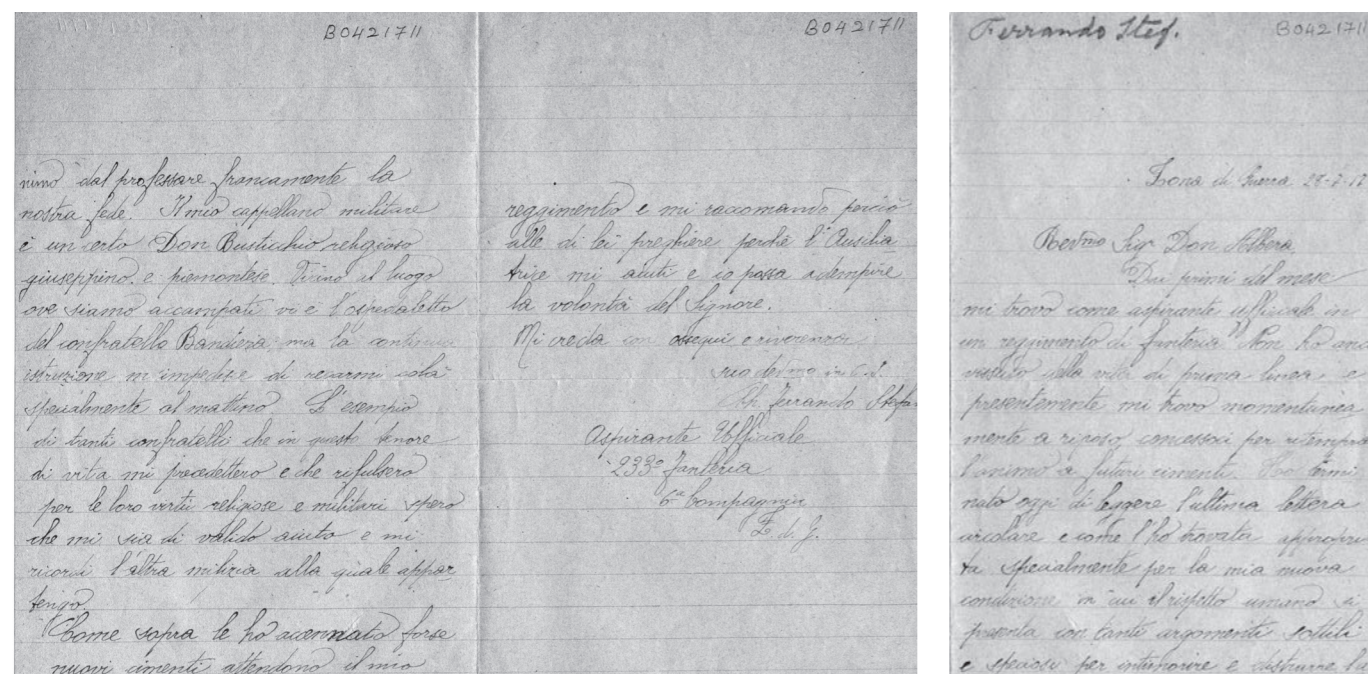 B0421711
nimo dal professare francamente la
nostra fede. Il mio cappellano militare
è un certo Don Busticchio religioso
giuseppino e piemontese. Vicino al luogo
ove siamo accampati vi è l'ospedaletto
del confratello Bandiera; ma la continua
istruzione m'impedisce di recarmi colà
specialmente al mattino. L'esempio
di tanti confratelli che in questo tenore
di vita mi precedettero e che rifulsero
per le loro virtù religiose e militari spero
che mi sia di valido aiuto e mi
ricordi l'altra milizia alla quale appar
tengo.
Come sopra le ho accennato forse
nuovi cimenti attendono il mio
B0421711
reggimento e mi raccomando perciò
alle di lei preghiere perchè l'Ausilia
trice mi aiuti e io possa adempire
la volontà del Signore.
Mi creda con ossequi e riverenza
suo dev.mo in C. J.
Ch. Ferrando Stefa
Aspirante Ufficiale
233° Fanteria
6a Compagnia
Z. d. G.
Ferrando Stef. B0421711
Zona di Guerra 28-7-17
Rev.mo Sig. Don Albera,
Dai primi del mese
mi trovo come aspirante ufficiale in
un reggimento di fanteria. Non ho anc
vissuto della vita di prima linea e
presentemente mi trovo momentanea
mente a riposo concessoci per ritempra
l'animo a futuri cimenti. Ho termi
nato oggi di leggere l'ultima lettera
circolare e come l'ho trovata appropri
ta specialmente per la mia nuova
condizione in cui il rispetto umano si
presenta con tanti argomenti sottili
e speciosi per intimorire e distrarre l'a